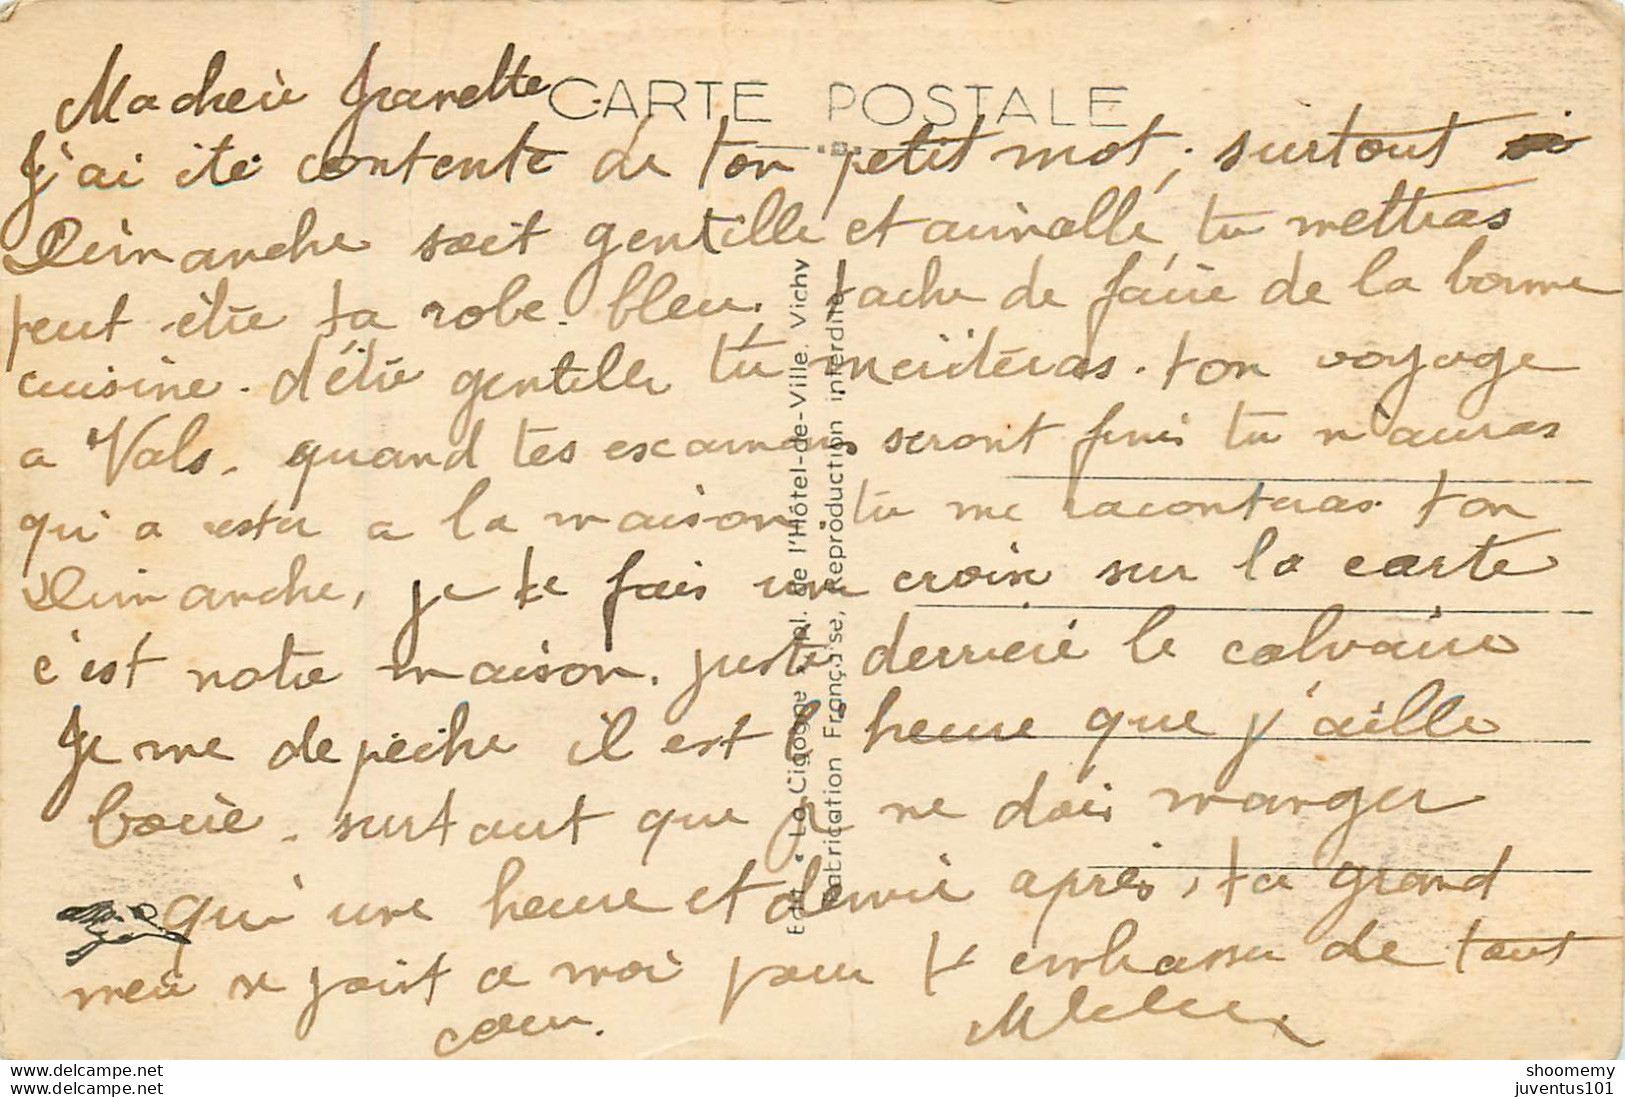 Ma cheie Jeanette
CARTE POSTALE
J'ai ité contente de ton petit mot, surtout si
Dimanche soit gentille et aimable, tu mettras
peut être ta robe bleu. tache de faire de la bonne
cuisine. d'être gentille tu mériteras. ton voyage
a Vals. quand tes examans seront finis tu n'auras
qui a rester a la maison, tu me raconteras ton
Dimanche, je te fais une croix sur la carte
c'est notre maison. juste derriere le calvaire
Je me depêche il est l'heure que j'aille
boire. surtout que je ne dois manger
qu'une heure et demie après, ta grand
mere se joint a moi pour t'embrasser de tout
coeur.
Edit. "La Cigogne", pl. de l'Hôtel-de-Ville. Vichy
Fabrication Française, Reproduction interdite
shoomemy
juventus101